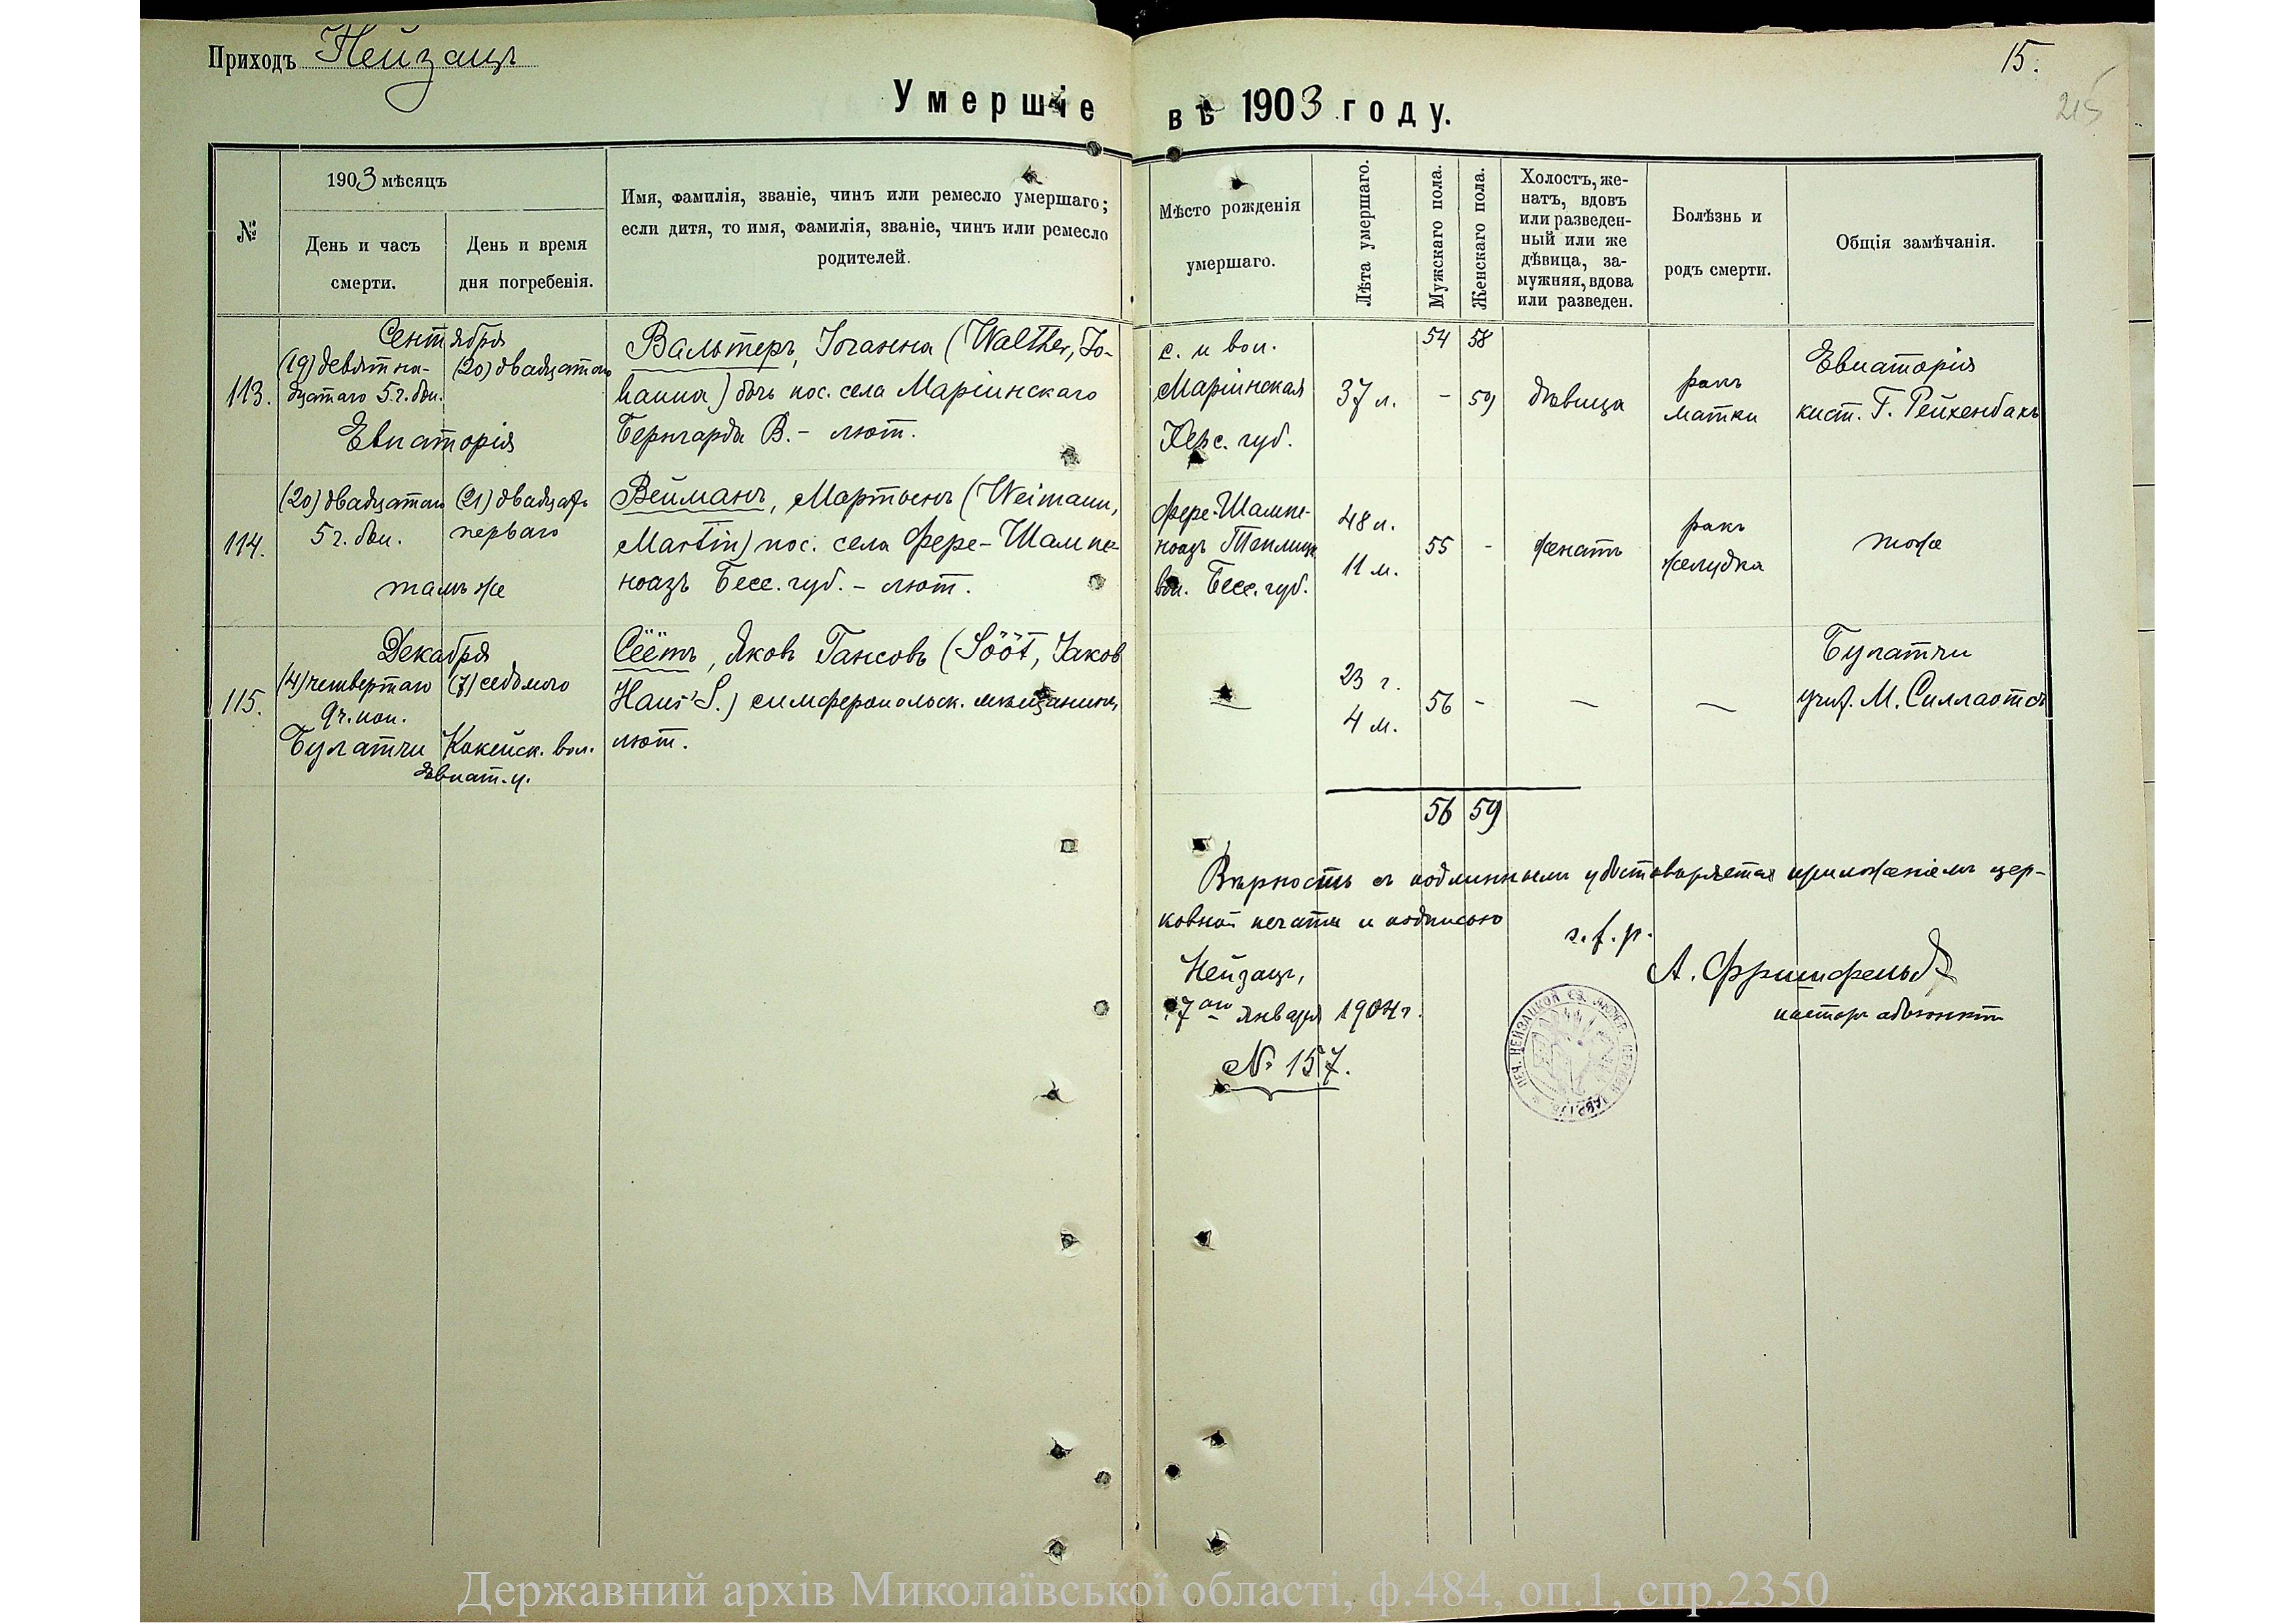 Приходъ Нейзацъ
15.
215
Умершіе въ 1903 году.
№
1903 мѣсяцъ
День и часъ смерти.
День и время дня погребенія.
Имя, фамилія, званіе, чинъ или ремесло умершаго;
если дитя, то имя, фамилія, званіе, чинъ или ремесло
родителей.
Мѣсто рожденія
умершаго.
Лѣта умершаго.
Мужскаго пола.
Женскаго пола.
Холостъ, же-
натъ, вдовъ
или разведен-
ный или же
дѣвица, за-
мужняя, вдова
или разведен.
Болѣзнь и
родъ смерти.
Общія замѣчанія.
113.
Сентября
(19) девятна-
дцатаго 5 ч. дн.
(20) двадцатаго
Евпаторія
Вальтеръ, Іоганна (Walther, Jo-
hanna) дочь пос. села Маріинскаго
Бернгарда В. - лют.
с. и вол.
Маріинская
Херс. губ.
37 л.
54
-
58
59
дѣвица
ракъ
матки
Евпаторія
кист. Г. Рейхенбахъ
114.
(20) двадцатаго
5 ч. дн.
(21) двадцать
перваго
тамъ же
Вейманъ, Мартынъ (Weimann,
Martin) пос. села Фере-Шампе-
ноазъ Бесс. губ. - лют.
Фере-Шампе-
ноазъ Теплицк.
вол. Бесс. губ.
48 л.
11 м.
55
-
женатъ
ракъ
желудка
тоже
115.
Декабря
(4) четвертаго
9 ч. поп.
(7) седьмого
Булатчи Кокейск. вол.
Евпат. у.
Сёётъ, Яковъ Гансовъ (Sööt, Jakob
Hans' S.) симферопольск. мѣщанинъ,
лют.
—
23 г.
4 м.
56
-
—
—
Булатчи
учит. М. Силлаотсъ
56
59
Вѣрность съ подлиннымъ удостовѣряется приложеніемъ цер-
ковной печати и подписью
Нейзацъ,
7ого января 1904 г.
№ 157.
А. Фришфельдъ
пасторъ адъюнктъ
Державний архів Миколаївської області, ф.484, оп.1, спр.2350